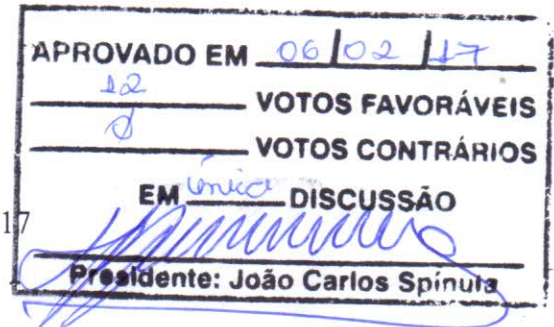 APROVADO EM 06/02/17
12 VOTOS FAVORÁVEIS
Ø VOTOS CONTRÁRIOS
EM única DISCUSSÃO
17
Presidente: João Carlos Spínula